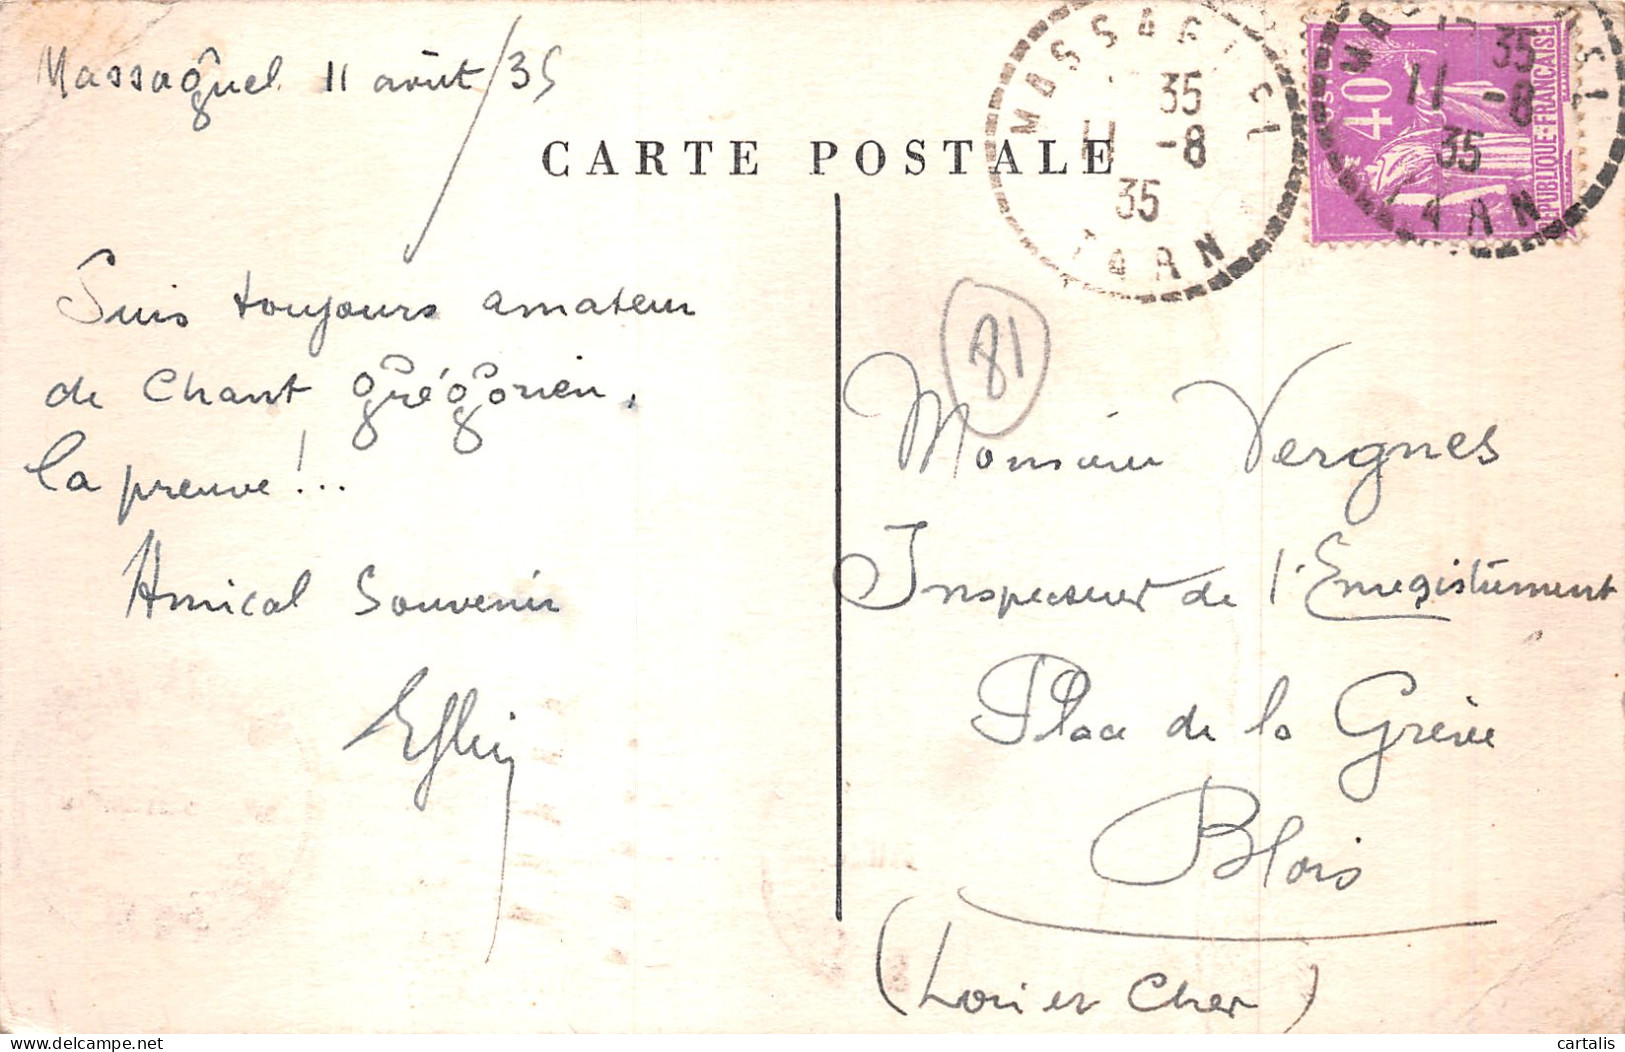 Massaguel 11 août / 35
CARTE POSTALE
MASSAGUEL
35
11 -8
35
TARN
POSTES
40
REPUBLIQUE-FRANÇAISE
35
11 -8
35
TARN
Suis toujours amateur
de Chant grégorien.
la preuve !...
Amical Souvenir
81
Monsieur Vergnes
Inspecteur de l'Enregistrement
Place de la Grève
Blois
(Loir et Cher)
delcampe.net
cartalis